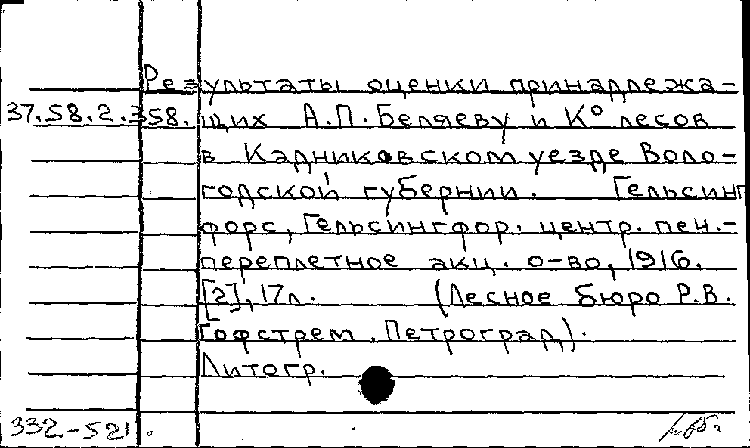 Результаты оценки принадлежа-
37.58.2.358. щих А.П. Беляеву и К° лесов
в Кадниковском уезде Воло-
годской губернии. Гельсинг
форс, Гельсингфор. центр. печ.-
переплетное акц. о-во, 1916.
[2], 17л. (Лесное Бюро Р.В.
Гофстрем. Петроград).
Литогр.
332.-521.